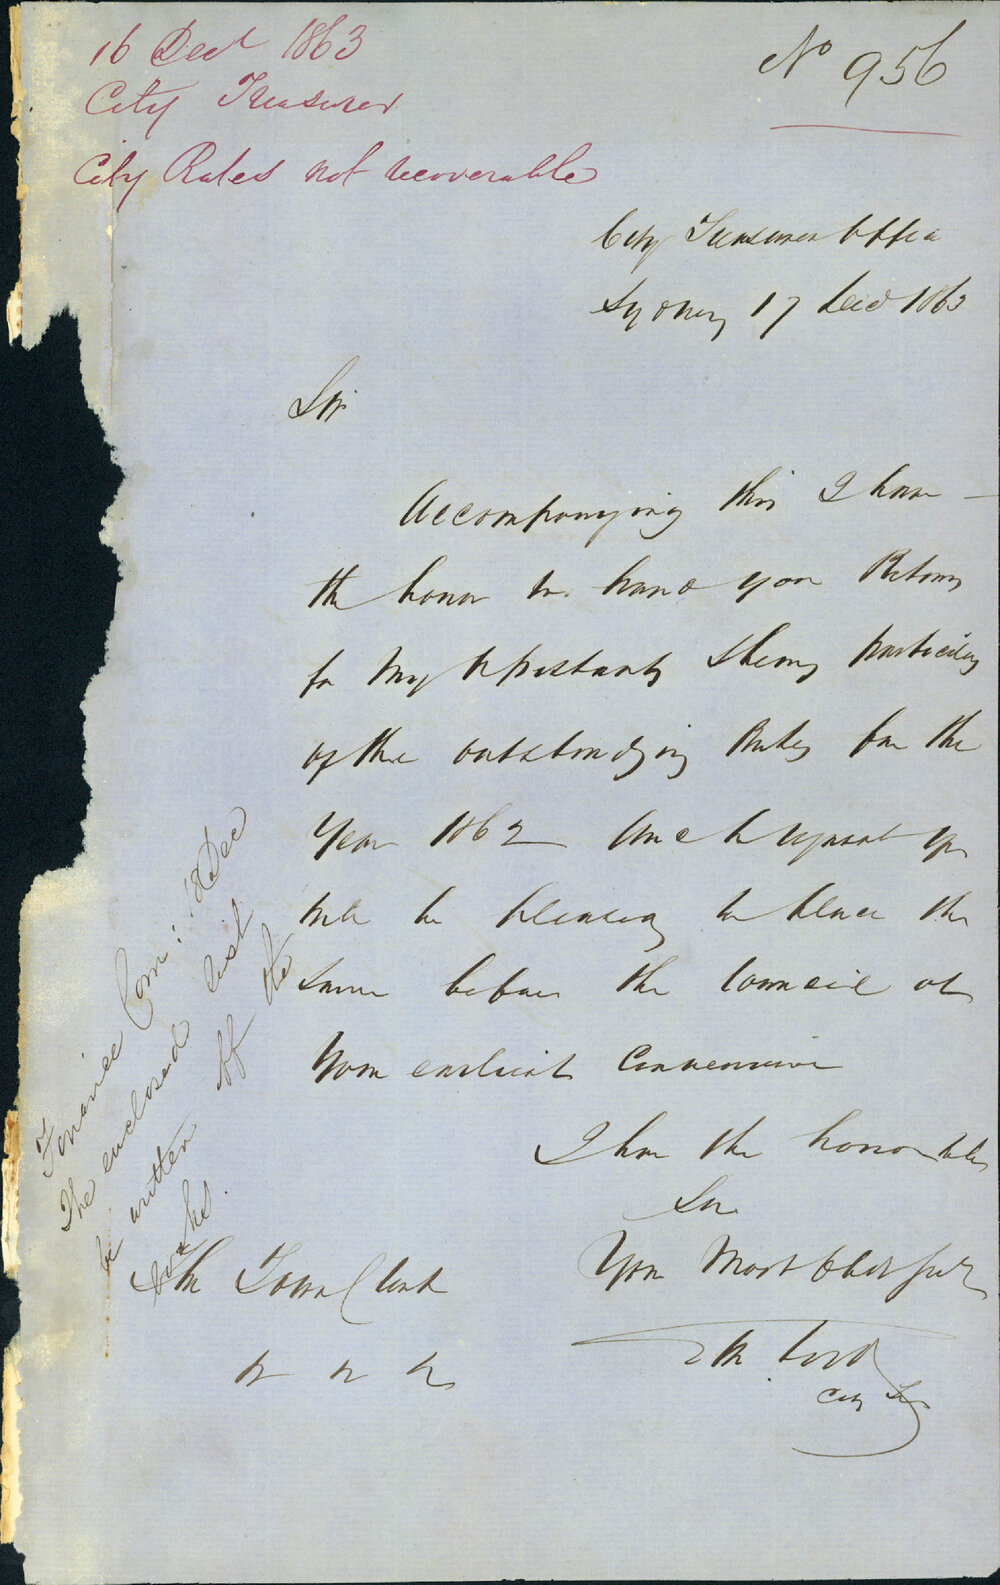 16 Dect 1863
City Treasurer
City Rates not recoverable
No 956
City Treasurers Office
Sydney 17 Decr 1863
Sir
Accompanying this I have
the honor to hand you Returns
for my Assistants showing particulars
of the outstanding Rates for the
Year 1862 and to request you
will be pleased to place the
same before the Council at
Your earliest Convenience
I have the honor to be
Sir
Your Most Obt Servt
City Trs
The Town Clerk
Finance Com: 18 Dec
The enclosed list
be written off the
books.